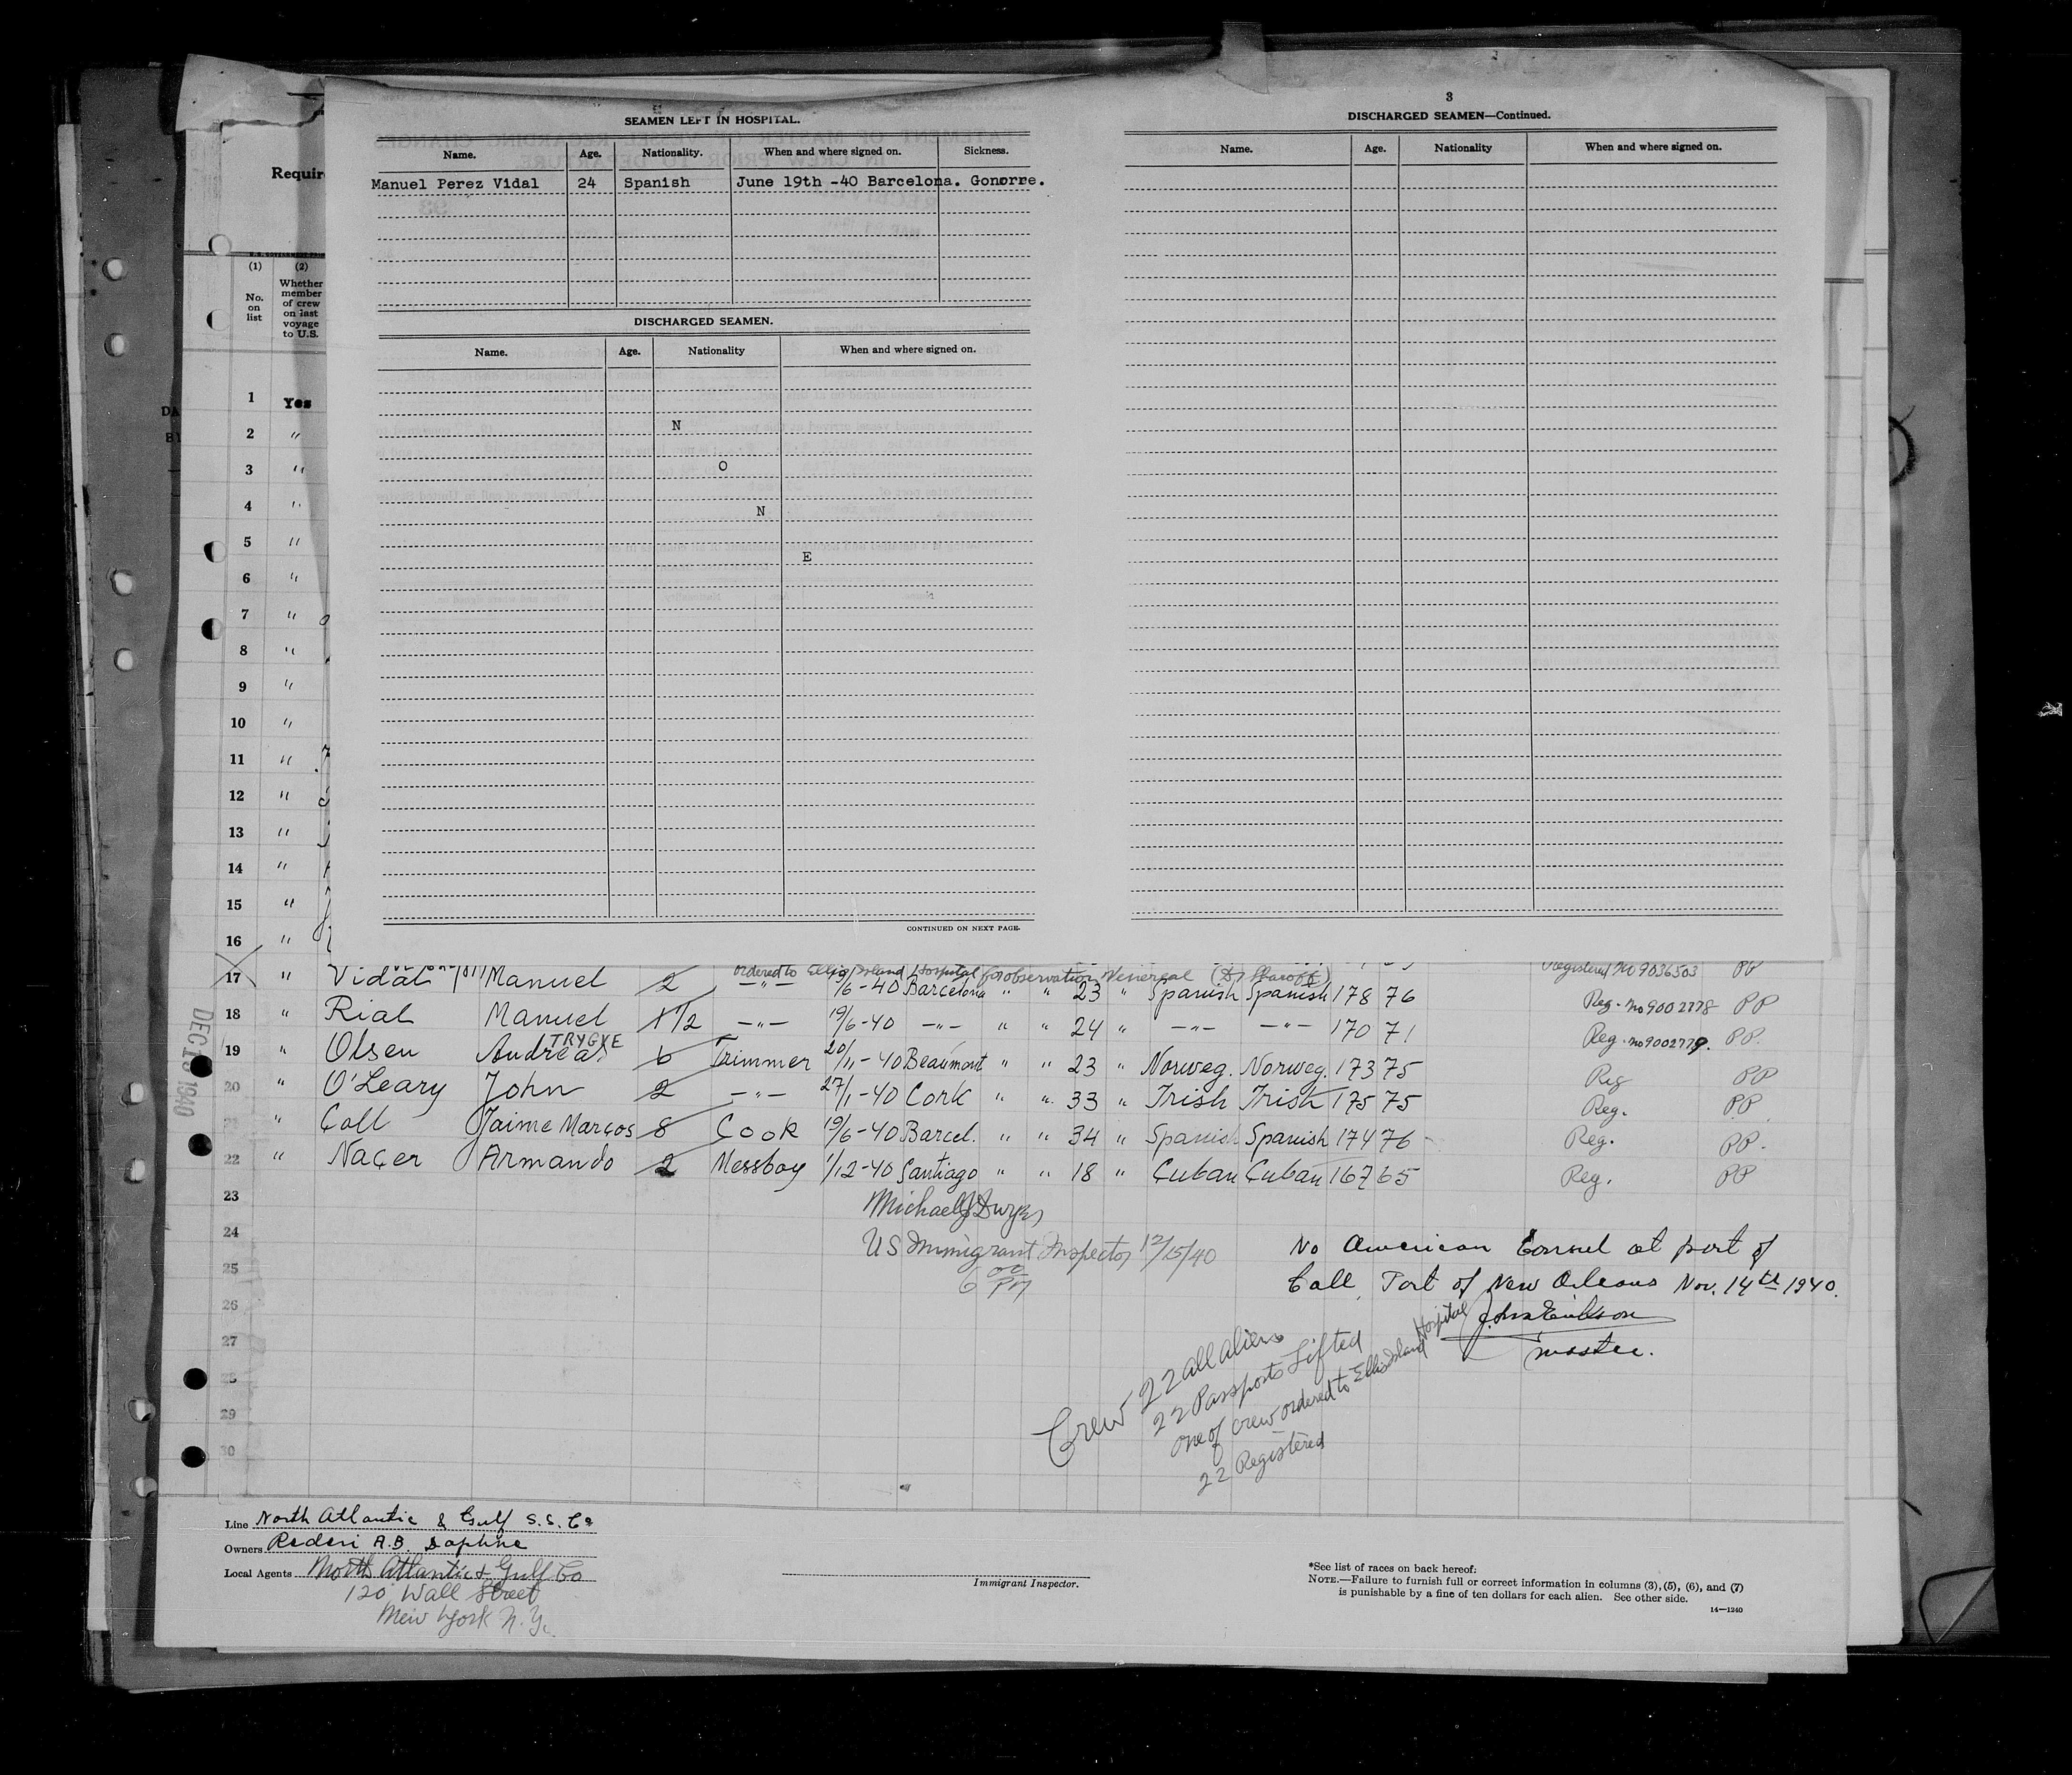 SEAMEN LEFT IN HOSPITAL.
Name. Age. Nationality. When and where signed on. Sickness.
Manuel Perez Vidal 24 Spanish June 19th -40 Barcelona. Gonorre.
DISCHARGED SEAMEN.
Name. Age. Nationality When and where signed on.
N
O
N
E
CONTINUED ON NEXT PAGE.
3
DISCHARGED SEAMEN—Continued.
Name. Age. Nationality When and where signed on.
Requir
(1) (2)
No. on list
Whether member of crew on last voyage to U.S.
1 Yes
2 "
3 "
4 "
5 "
6 "
7 "
8 "
9 "
10 "
11 "
12 "
13 "
14 "
15 "
16 "
ordered to Ellis Island Hospital for observation Venereal
Registered No 9036503 PP
17 " Vidal Manuel 2 -"- /6-40 Barcelona " " 23 " Spanish Spanish 178 76 Reg. No 9002778 PP
18 " Rial Manuel 1 1/2 -"- 19/6-40 -"- " " 24 " -"- -"- 170 71 Reg. No 9002779. PP.
19 " Olsen Andreas TRYGVE 6 Trimmer 20/11-40 Beaumont " " 23 " Norweg. Norweg. 173 75 Reg PP
20 " O'Leary John 2 -"- 27/1-40 Cork " " 33 " Irish Irish 175 75 Reg. PP
" Coll Jaime Marcos 8 Cook 19/6-40 Barcel. " " 34 " Spanish Spanish 174 76 Reg. PP.
22 " Nacer Armando 2 Messboy 1/12-40 Santiago " " 18 " Cuban Cuban 167 65 Reg. PP
23
24
25
26
27
28
29
30
DEC 1940
Michael J Dwyer
US Immigrant Inspector 12/15/40
6 00 PM
No American Consul at port of
Call, Port of New Orleans Nov. 14th 1940.
master.
Crew 22 all aliens
22 Passports Lifted
One of crew ordered to Ellis Island Hospital
22 Registered
Line North Atlantic & Gulf S.S. Co
Owners Rederi A.B. Daphne
Local Agents North Atlantic & Gulf Co
120 Wall Street
New York N.Y.
Immigrant Inspector.
*See list of races on back hereof.
NOTE.—Failure to furnish full or correct information in columns (3), (5), (6), and (7)
is punishable by a fine of ten dollars for each alien. See other side.
14—1240